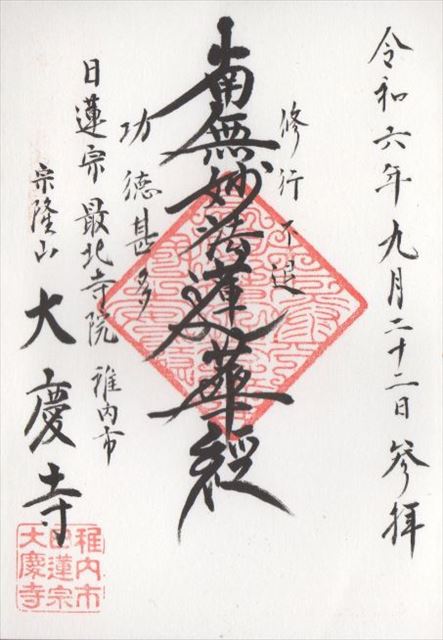 令和六年九月二十二日 参拝
修行不退
南無妙法蓮華経
功徳甚多
日蓮宗 最北寺院 稚内市
宗隆山 大慶寺
稚内市
日蓮宗
大慶寺